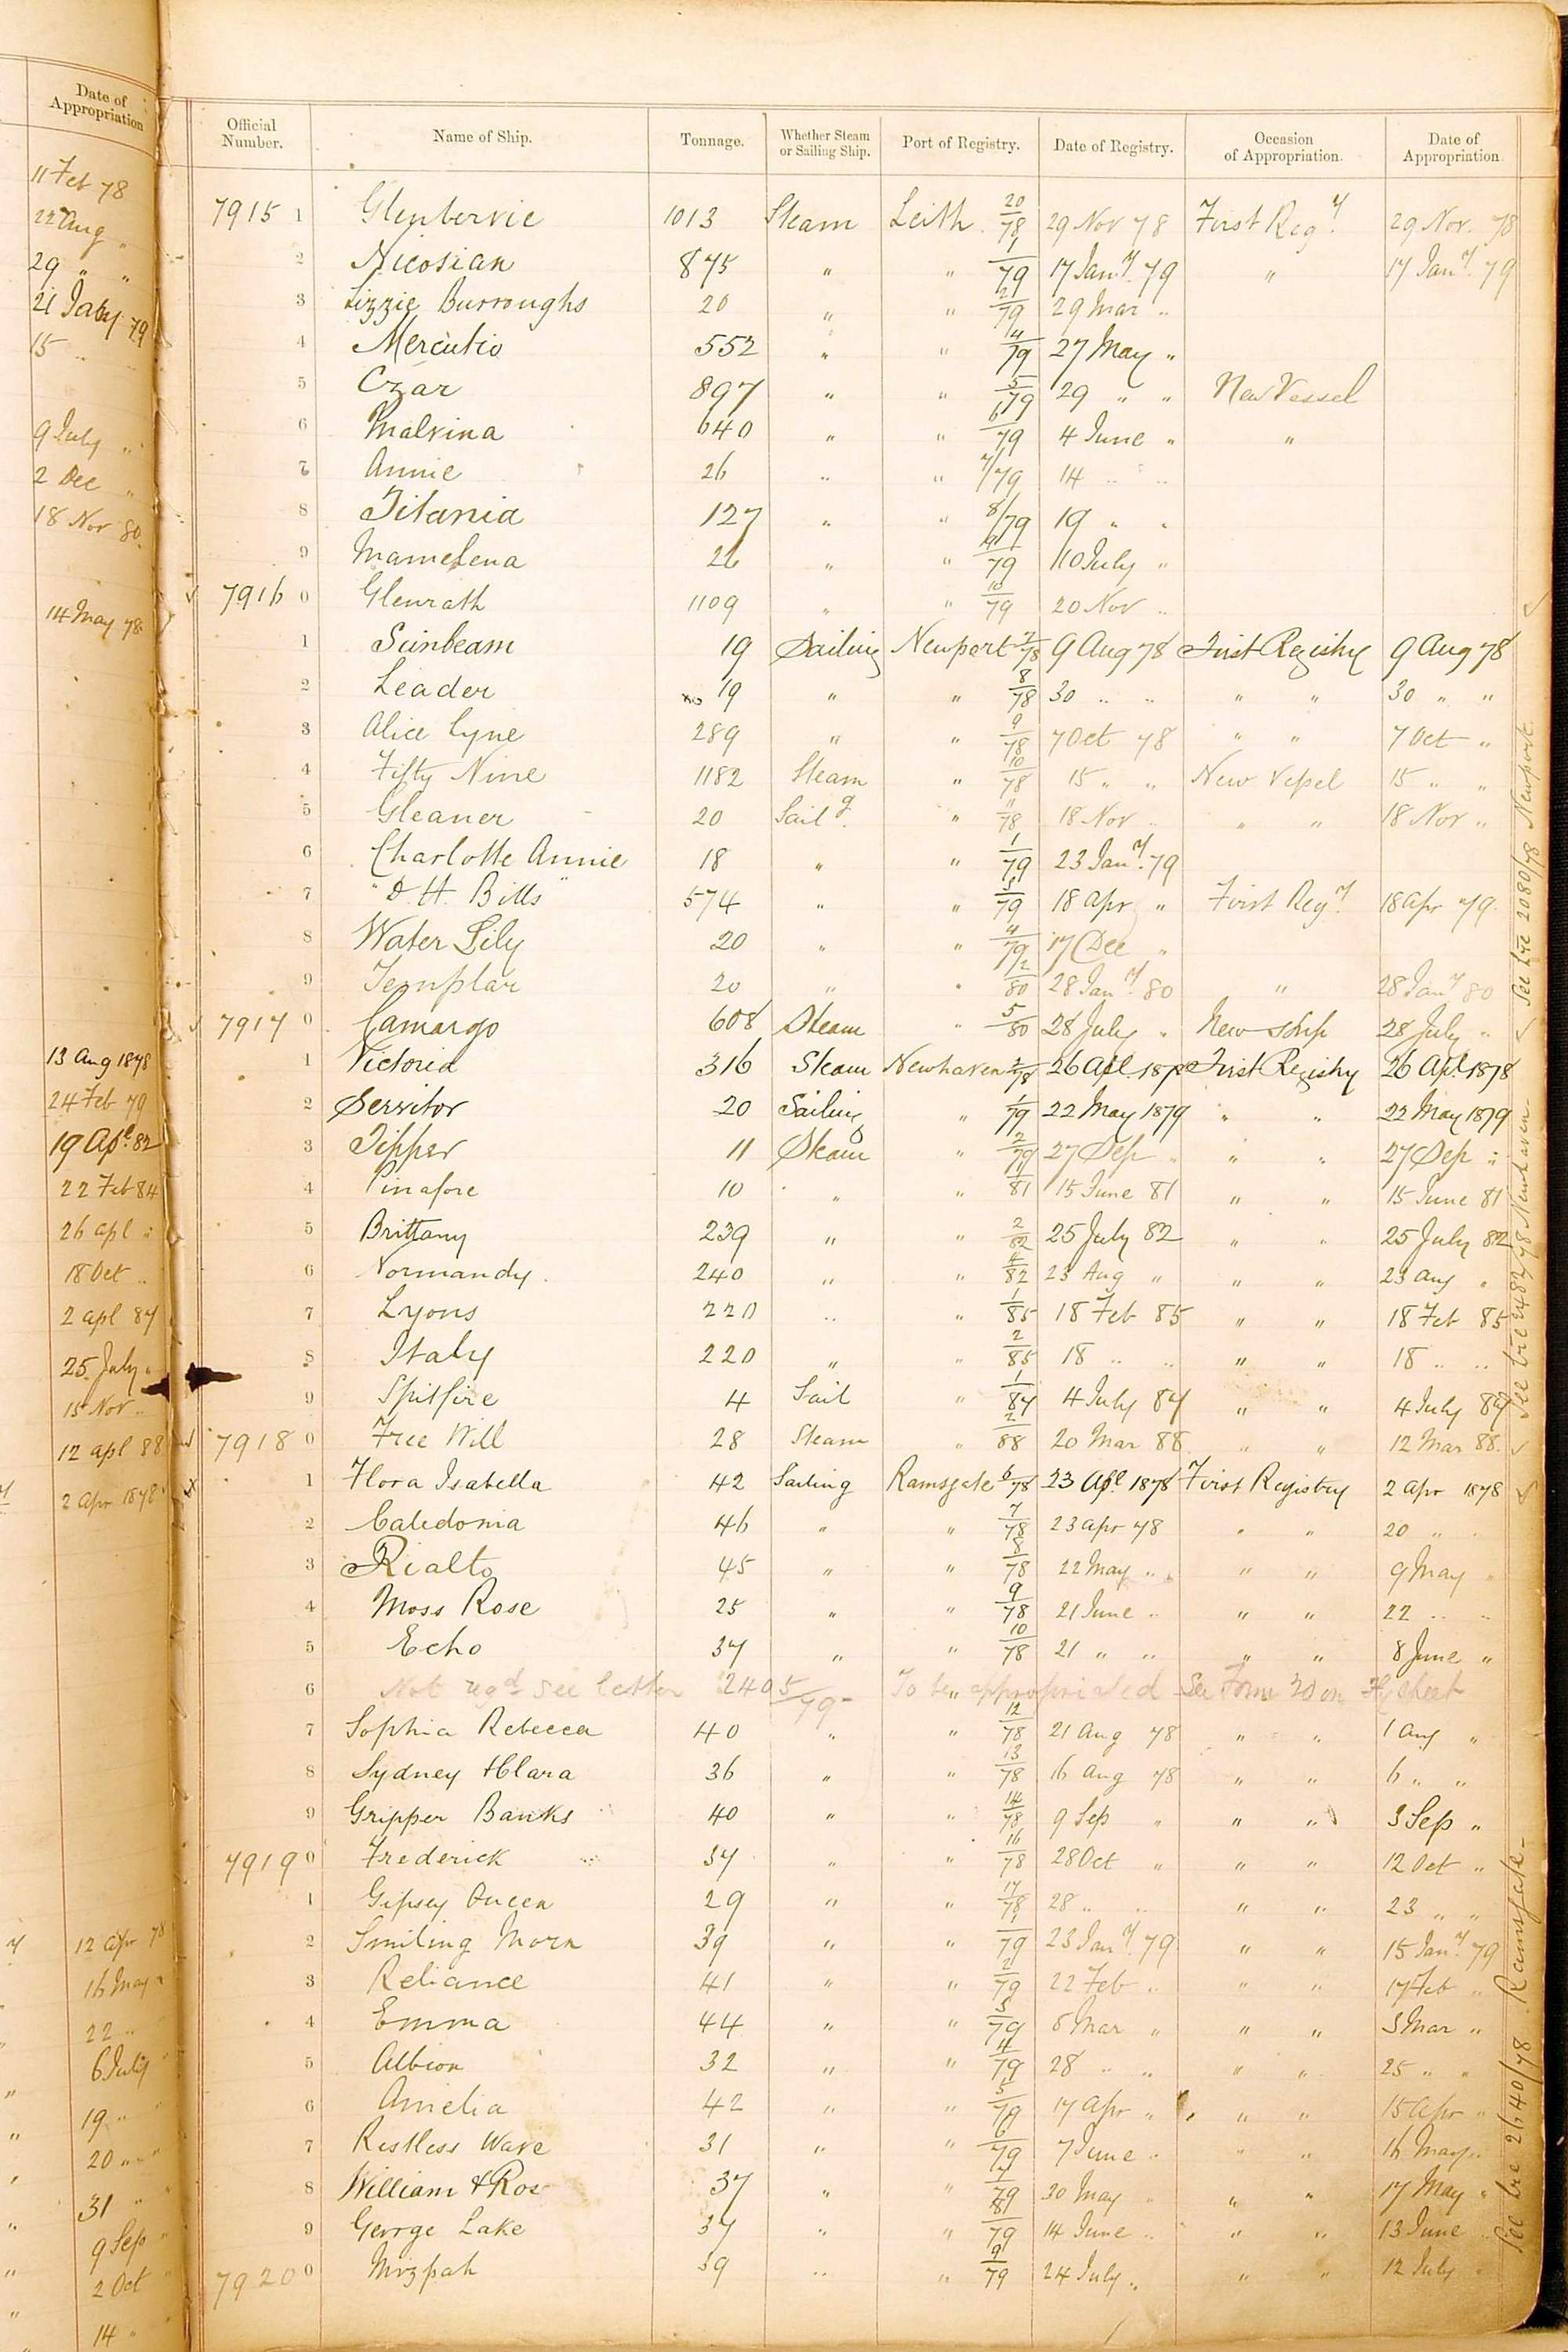 Date of
Appropriation
11 Feb 78
22 Aug "
29 " "
21 Jany 79
15 "
9 July "
2 Dec "
18 Nov 80
14 May 78
13 Aug 1878
24 Feb 79
19 Apl 82
22 Feb 84
26 Apl "
18 Oct "
2 Apl 87
25 July "
15 Nov "
12 Apl 88
2 Apr 1878
12 Apr 78
16 May "
22 " "
6 July "
19 " "
20 " "
31 "
9 Sep "
2 Oct "
14 "
Official Number. Name of Ship. Tonnage. Whether Steam or Sailing Ship. Port of Registry. Date of Registry. Occasion of Appropriation. Date of Appropriation
7915 1 Glenbervie 1013 Steam Leith 20/78 29 Nov 78 First Regy. 29 Nov. 78
2 Nicosian 875 " " 1/79 17 Jany. 79 " 17 Jany. 79
3 Lizzie Burroughs 20 " " 2/79 29 Mar "
4 Mercutio 552 " " 4/79 27 May "
5 Czar 897 " " 5/79 29 " " New Vessel
6 Malvina 640 " " 6/79 4 June " "
7 Annie 26 " " 7/79 14 " "
8 Titania 127 " " 8/79 19 " "
9 Mamelena 26 " " 9/79 10 July "
7916 0 Glenrath 1109 " " 10/79 20 Nov "
1 Sunbeam 19 Sailing Newport 7/78 9 Aug 78 First Registry 9 Aug 78
2 Leader 19 " " 8/78 30 " " " " 30 " "
3 Alice Lyne 289 " " 9/78 7 Oct 78 " " 7 Oct "
4 Fifty Nine 1182 Steam " 10/78 15 " " New Vessel 15 " "
5 Gleaner 20 Sailg. " 11/78 18 Nov " " " 18 Nov "
6 Charlotte Annie 18 " " 1/79 23 Jany. 79
7 "D. H. Bills" 574 " " 3/79 18 Apr " First Regy. 18 Apr 79.
8 Water Lily 20 " " 4/79 17 Dec "
9 Templar 20 " " 1/80 28 Jany. 80 " 28 Jany 80
7917 0 Camargo 608 Steam " 5/80 28 July " New Ship 28 July "
1 Victoria 316 Steam Newhaven 2/78 26 Apl. 1878 First Registry 26 Apl. 1878
2 Servitor 20 Sailing " 1/79 22 May 1879 " " 22 May 1879
3 Tipper 11 Steam " 2/79 27 Sep " " " 27 Sep "
4 Pinafore 10 " " 1/81 15 June 81 " " 15 June 81
5 Brittany 239 " " 2/82 25 July 82 " " 25 July 82
6 Normandy. 240 " " 4/82 23 Aug " " " 23 Aug "
7 Lyons 220 " " 1/85 18 Feb 85 " " 18 Feb 85
8 Italy 220 " " 2/85 18 " " " " 18 " "
9 Spitfire 4 Sail " 1/87 4 July 87 " " 4 July 87
7918 0 Free Will 28 Steam " 2/88 20 Mar 88 " " 12 Mar 88.
1 Flora Isabella 42 Sailing Ramsgate 6/78 23 Apl 1878 First Registry 2 Apr 1878
2 Caledonia 46 " " 7/78 23 Apr 78 " " 20 " "
3 Rialto 45 " " 8/78 22 May " " " 9 May "
4 Moss Rose 25 " " 9/78 21 June " " " 22 " "
5 Echo 37 " " 10/78 21 " " " " 8 June "
6 Not regd see letter 2405/79 - To be appropriated See Form 20 on Fly sheet
7 Sophia Rebecca 40 " " 12/78 21 Aug 78 " " 1 Aug "
8 Sydney & Clara 36 " " 13/78 16 Aug 78 " " 6 " "
9 Gripper Banks 40 " " 14/78 9 Sep " " " 3 Sep "
7919 0 Frederick 37 " " 16/78 28 Oct " " " 12 Oct "
1 Gipsey Queen 29 " " 17/78 28 " " " " 23 " "
2 Smiling Morn 39 " " 1/79 23 Jany. 79 " " 15 Jany. 79
3 Reliance 41 " " 2/79 22 Feb " " " 17 Feb "
4 Emma 44 " " 3/79 8 Mar " " " 3 Mar "
5 Albion 32 " " 4/79 28 " " " " 25 " "
6 Amelia 42 " " 5/79 17 Apr " " " 15 Apr "
7 Restless Wave 31 " " 6/79 7 June " " " 16 May "
8 William & Rose 37 " " 7/79 30 May " " " 17 May "
9 George Lake 37 " " 8/79 14 June " " " 13 June "
7920 0 Mizpah 39 " " 9/79 24 July " " " 12 July "
See Lre 2080/78 Newport.
See Lre 2487/78 Newhaven
See Lre 2640/78 Ramsgate